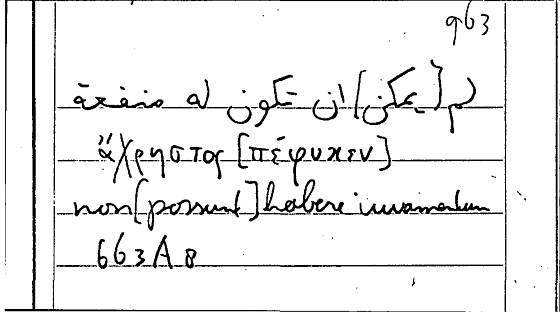 963
لم [يمكن] ان تكون له منفعة
ἄχρηστος [πέφυκεν]
non [possunt] habere iuvamentum
663A8